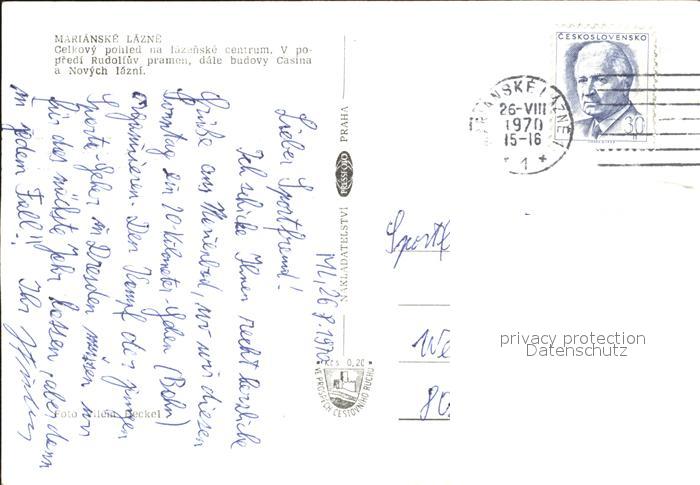 MARIÁNSKÉ LÁZNĚ
Celkový pohled na lázeňské centrum. V po-
předí Rudolfův pramen, dále budovy Casina
a Nových lázní.
ML, 26.8.1970
Lieber Sportfreund!
Ich schicke Ihnen recht herzliche
Grüße aus Marienbad, wo wir diesen
Sonntag ein 20-Kilometer-Gehen (Bahn)
organisieren. Den Kampf der jungen
Sportu-Geher in Dresden müssen wir
für das nächste Jahr lassen, aber dann
in jedem Fall!! Ihr
Foto Vilém Heckel
NAKLADATELSTVÍ PRESSFOTO PRAHA
Kčs 0,20
VE PROSPĚCH CESTOVNÍHO RUCHU
ČESKOSLOVENSKO
30 h
MARIÁNSKÉ LÁZNĚ 1
26-VIII
1970
15-16
* 1 *
Sportf
We
80
privacy protection
Datenschutz